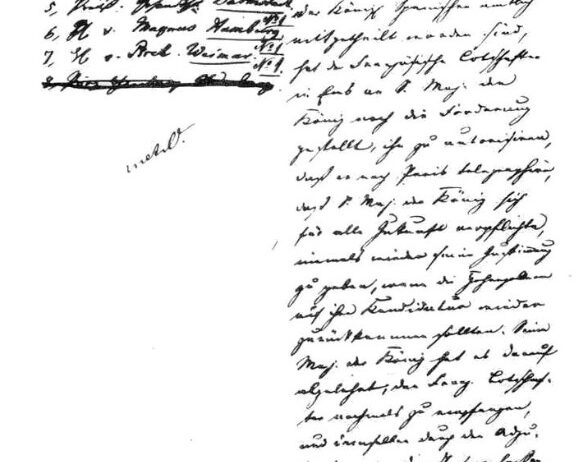 5, Preuß. Gesandtsch. Darmstadt
6, H v. Magnus Hamburg Nº 1
7, H v. Pirch Weimar Nº 1
der König. Spanischen amtlich
mitgetheilt worden sind,
hat der Französische Botschafter
in Ems an S. Maj. den
König noch die Forderung
gestellt, ihn zu autorisiren,
daß er nach Paris telegraphire,
daß S. Maj. der König sich
für alle Zukunft verpflichte,
niemals wieder seine Zustimmung
zu geben, wenn die Hohenzollern
auf ihre Kandidatur wieder
zurückkommen sollten. Seine
Maj. der König hat es darauf
abgelehnt, den Franz. Botschaf-
ter nochmals zu empfangen,
und demselben durch den Adju-